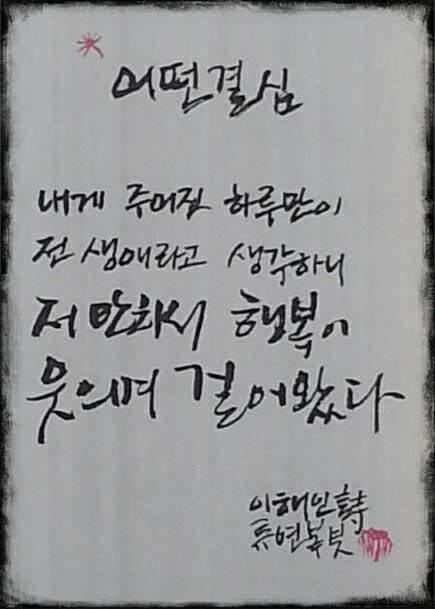 어떤결심
내게 주어진 하루만이
전 생애라고 생각하니
저만치서 행복이
웃으며 걸어왔다
이해인詩
류연복붓